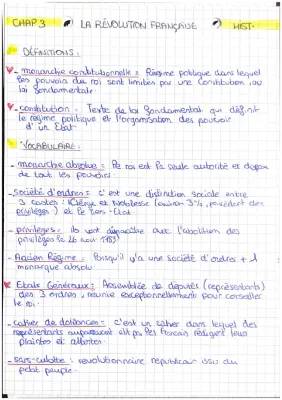 CHAP 3 LA RÉVOLUTION FRANÇAISE HIST.
DÉFINITIONS :
- monarchie constitutionnelle = Régime politique dans lequel
les pouvoirs du roi sont limités par une Constitution, ou
loi fondamentale.
- constitution = Texte de loi fondamental qui définit
le régime politique et l'organisation des pouvoirs
d'un Etat
VOCABULAIRE :
- monarchie absolue = le roi est la seule autorité et dispose
de tout les pouvoirs.
- société d'ordres = c'est une distinction sociale entre
3 castes : (Clergé et Noblesse (environ 3%, possèdent des
privilèges) et le tiers-Etat.
- privilèges = ils vont disparaître avec l'abolition des
privilèges le 1789
- Ancien Régime = Puisqu'il y a une société d'ordres + 1
monarque absolu
Etats Généraux = Assemblée de députés (représentants)
des 3 ordres, réunie exceptionnellement pour conseiller
le roi.
- cahier de doléances = c'est un cahier dans lequel des
représentants les français rédigent leurs
plaintes et
- sans-culotte = révolutionnaire républicain issu du
petit peuple.